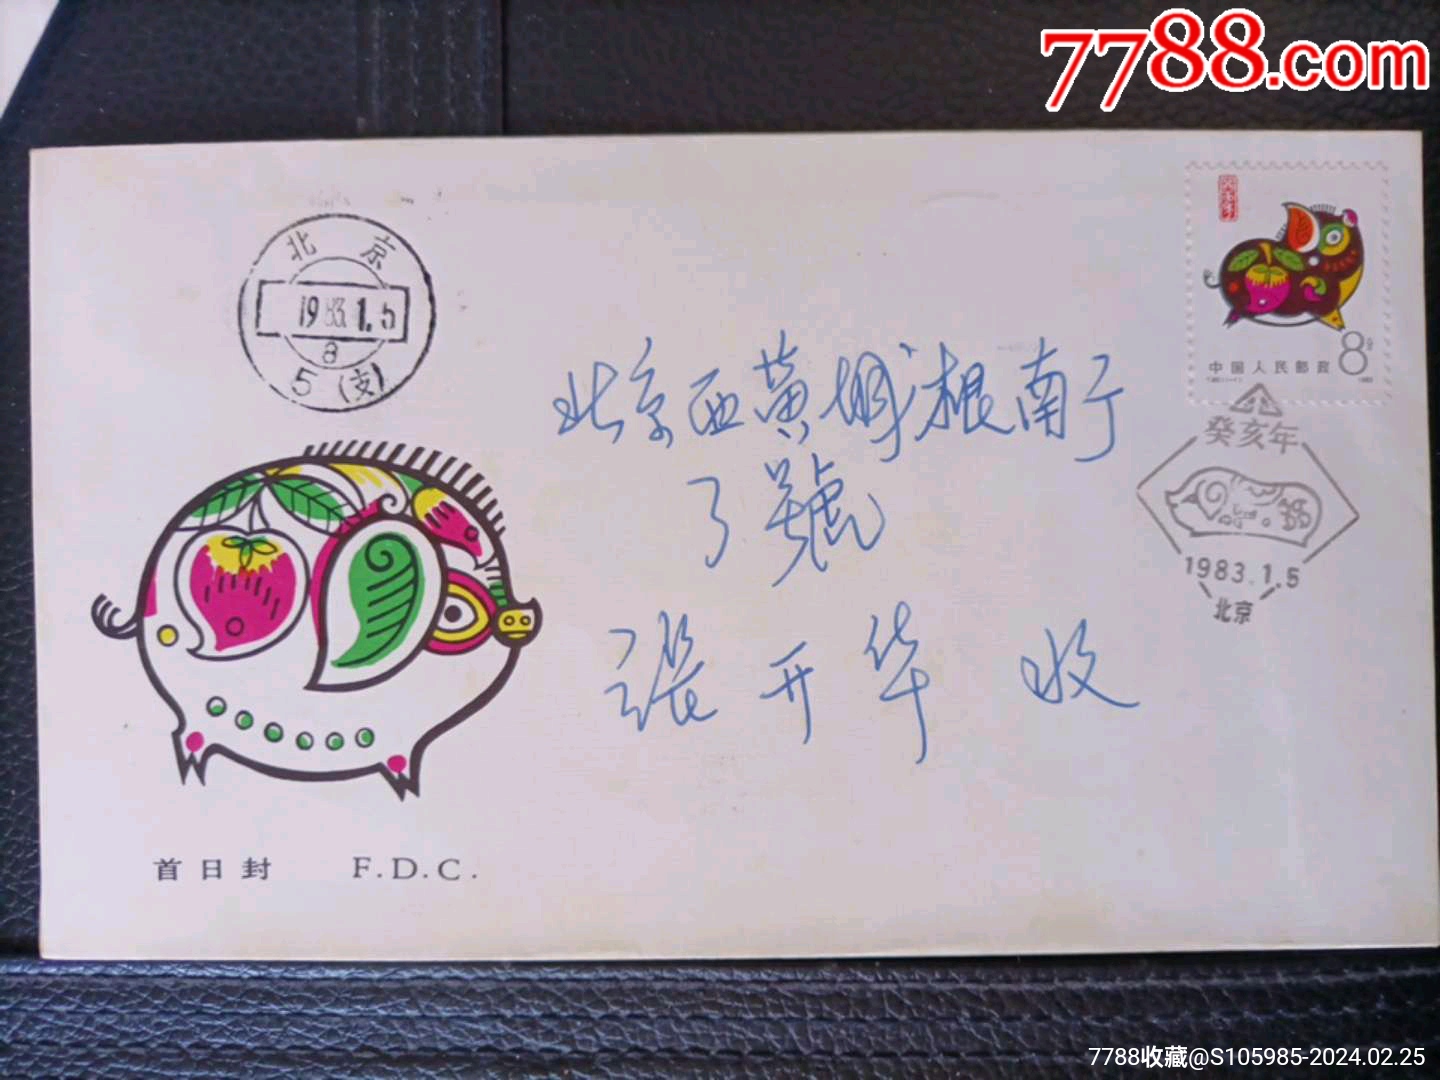 7788.com
北京
1983.1.5
8
5(支)
癸亥年
8分
中国人民邮政
1983
癸亥年
1983.1.5
北京
北京西黄城根南
號
张开华 收
首日封 F.D.C.
7788收藏@S105985-2024.02.25